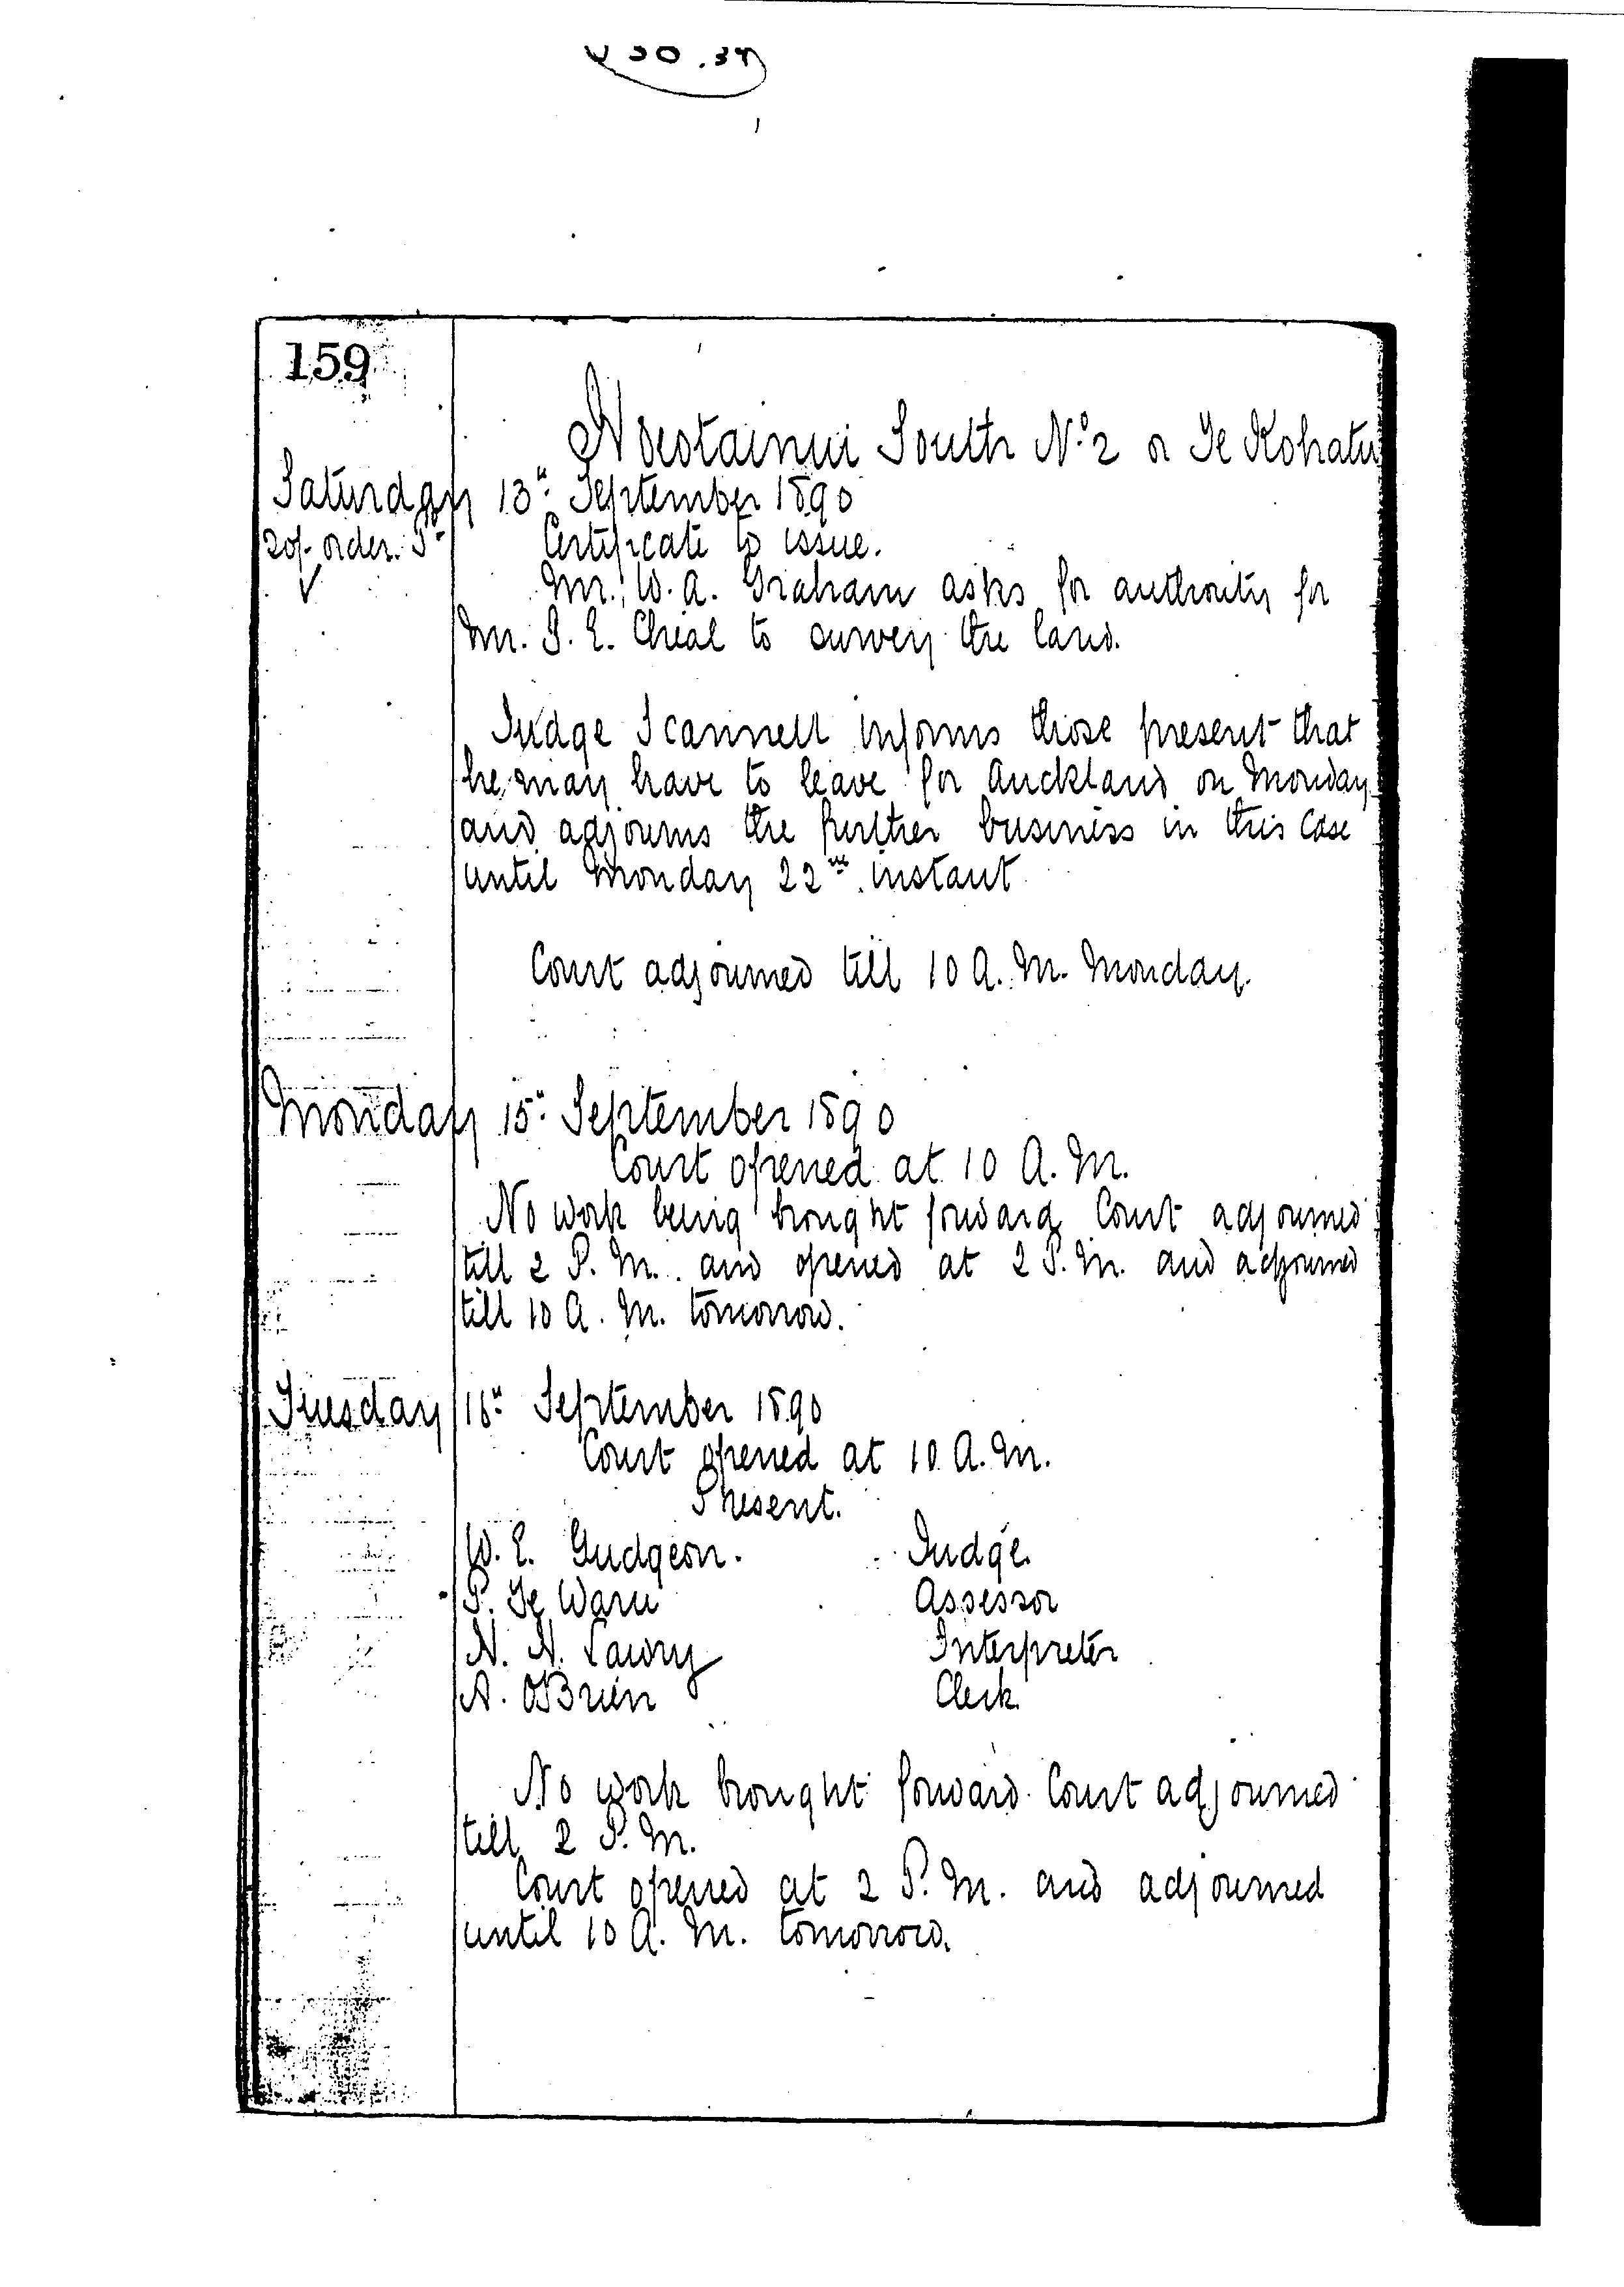 159
Hoeotainui South No. 2 or Te Kohatu
Saturday 13th September 1890
20/- order. Pd
Certificate to issue.
Mr. W. A. Graham asks for authority for
Mr. G. E. Cheal to survey the land.
Judge Scannell informs those present that
he may have to leave for Auckland on Monday
and adjourns the further business in this case
until Monday 22nd instant
Court adjourned till 10 A. M. Monday.
Monday 15th September 1890
Court opened at 10 A. M.
No work being brought forward Court adjourned
till 2 P. M. and opened at 2 P. M. and adjourned
till 10 A. M. tomorrow.
Tuesday 16th September 1890
Court opened at 10 A. M.
Present.
W. E. Gudgeon. Judge.
P. Te Waru Assessor
H. H. Lawry Interpreter
A. O'Brien Clerk
No work brought forward. Court adjourned
till 2 P. M.
Court opened at 2 P. M. and adjourned
until 10 A. M. tomorrow.